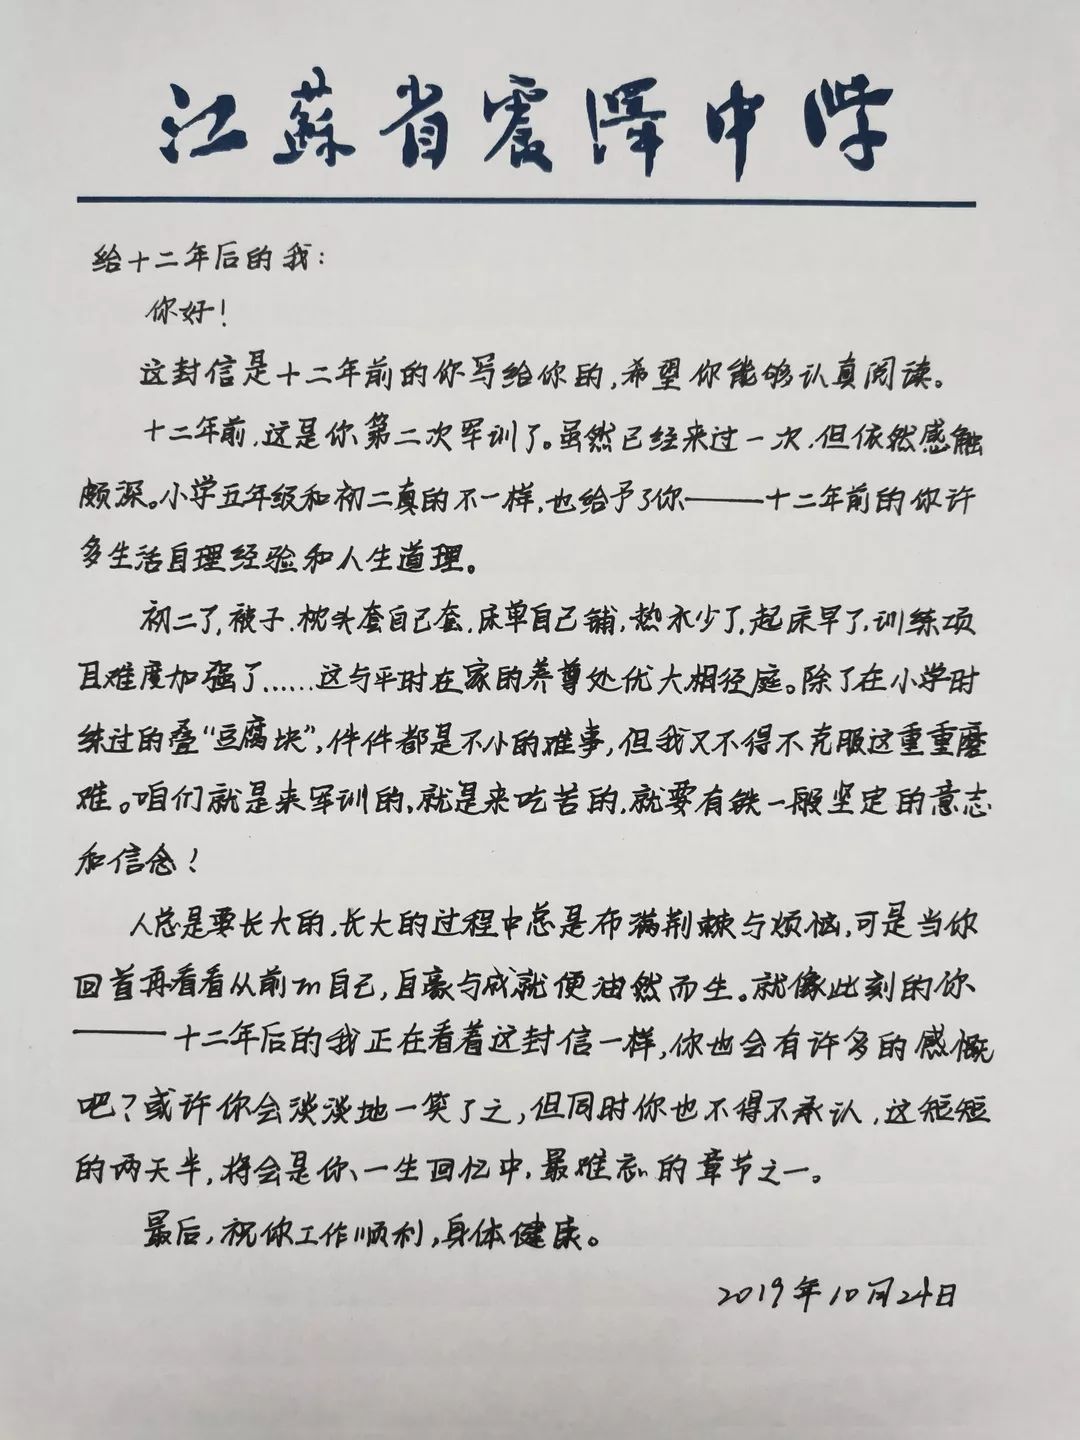 江蘇省震澤中学
给十二年后的我:
你好!
这封信是十二年前的你写给你的,希望你能够认真阅读。
十二年前,这是你第二次军训了。虽然已经来过一次,但依然感触
颇深。小学五年级和初二真的不一样,也给予了你——十二年前的你许
多生活自理经验和人生道理。
初二了,被子、枕头套自己套,床单自己铺,热水少了,起床早了,训练项
目难度加强了……这与平时在家的养尊处优大相径庭。除了在小学时
练过的叠“豆腐块”,件件都是不小的难事,但我又不得不克服这重重磨
难。咱们就是来军训的,就是来吃苦的,就要有铁一般坚定的意志
和信念!
人总是要长大的,长大的过程中总是布满荆棘与烦恼,可是当你
回首再看看从前的自己,自豪与成就便油然而生。就像此刻的你
——十二年后的我正在看着这封信一样,你也会有许多的感慨
吧?或许你会淡淡地一笑了之,但同时你也不得不承认,这短短
的两天半,将会是你一生回忆中,最难忘的章节之一。
最后,祝你工作顺利,身体健康。
2019年10月24日